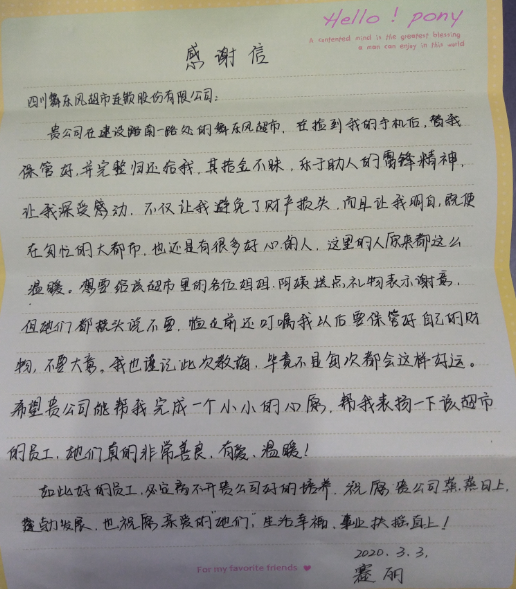 Hello! pony
A contented mind is the greatest blessing
a man can enjoy in this world
感谢信
四川舞东风超市连锁股份有限公司：
贵公司在建设路南一路处的舞东风超市，在捡到我的手机后，替我
保管好，并完整归还给我，其拾金不昧，乐于助人的雷锋精神，
让我深受感动，不仅让我避免了财产损失，而且让我明白，既使
在匆忙的大都市，也还是有很多好心的人，这里的人原来都这么
温暖。想要给该超市里的各位姐姐，阿姨送点礼物表示谢意，
但她们都摇头说不要，临走前还叮嘱我以后要保管好自己的财
物，不要大意。我也谨记此次教诲，毕竟不是每次都会这样好运。
希望贵公司能帮我完成一个小小的心愿，帮我表扬一下该超市
的员工，她们真的非常善良，有爱，温暖！
如此好的员工，必定离不开贵公司好的培养，祝愿贵公司蒸蒸日上，
蓬勃发展，也祝愿亲爱的“她们”，生活幸福，事业扶摇直上！
2020.3.3.
For my favorite friends